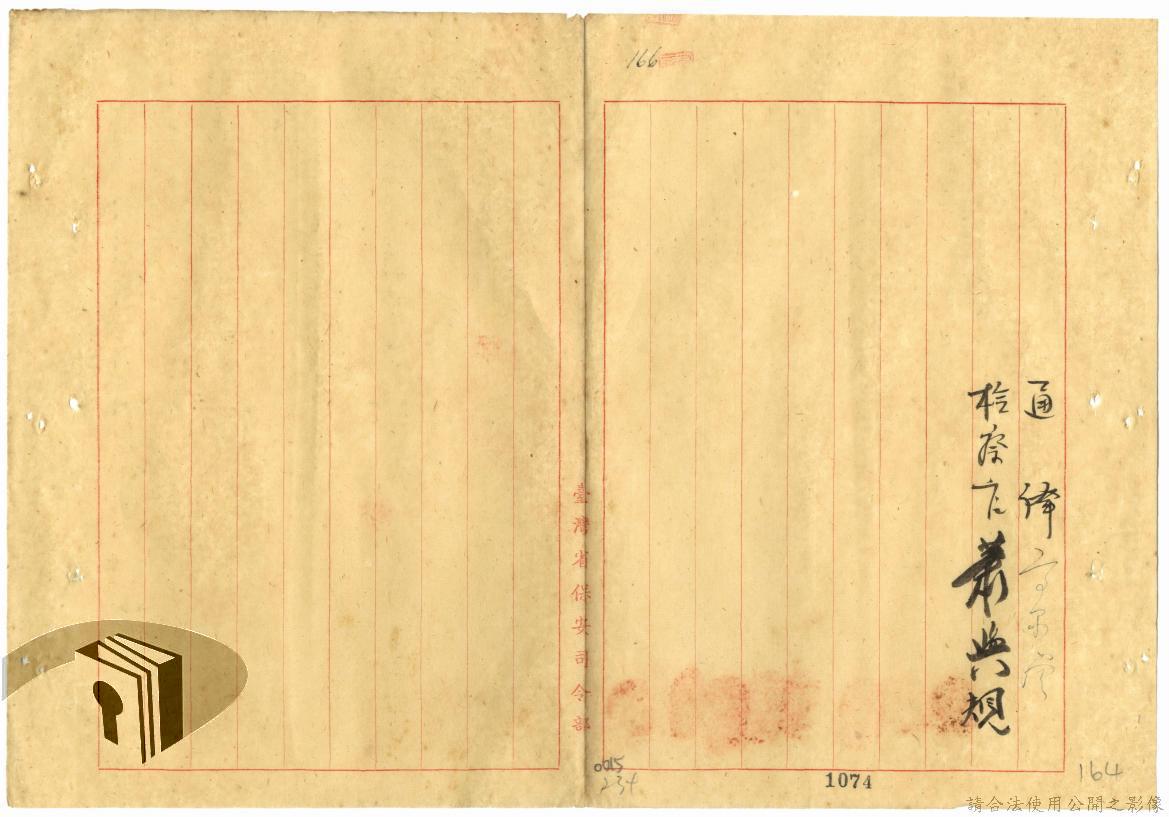 166
通 譯
檢察官 蕭與規
臺灣省保安司令部
0615
234
1074
164
請合法使用公開之影像